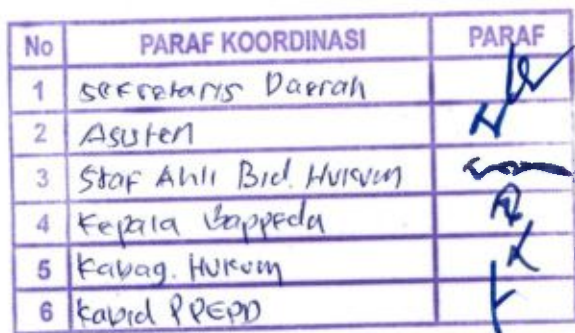 No PARAF KOORDINASI PARAF
1 Sekretaris Daerah
2 Asisten
3 Staf Ahli Bid. Hukum
4 Kepala Bappeda
5 Kabag. Hukum
6 Kabid PPEPD